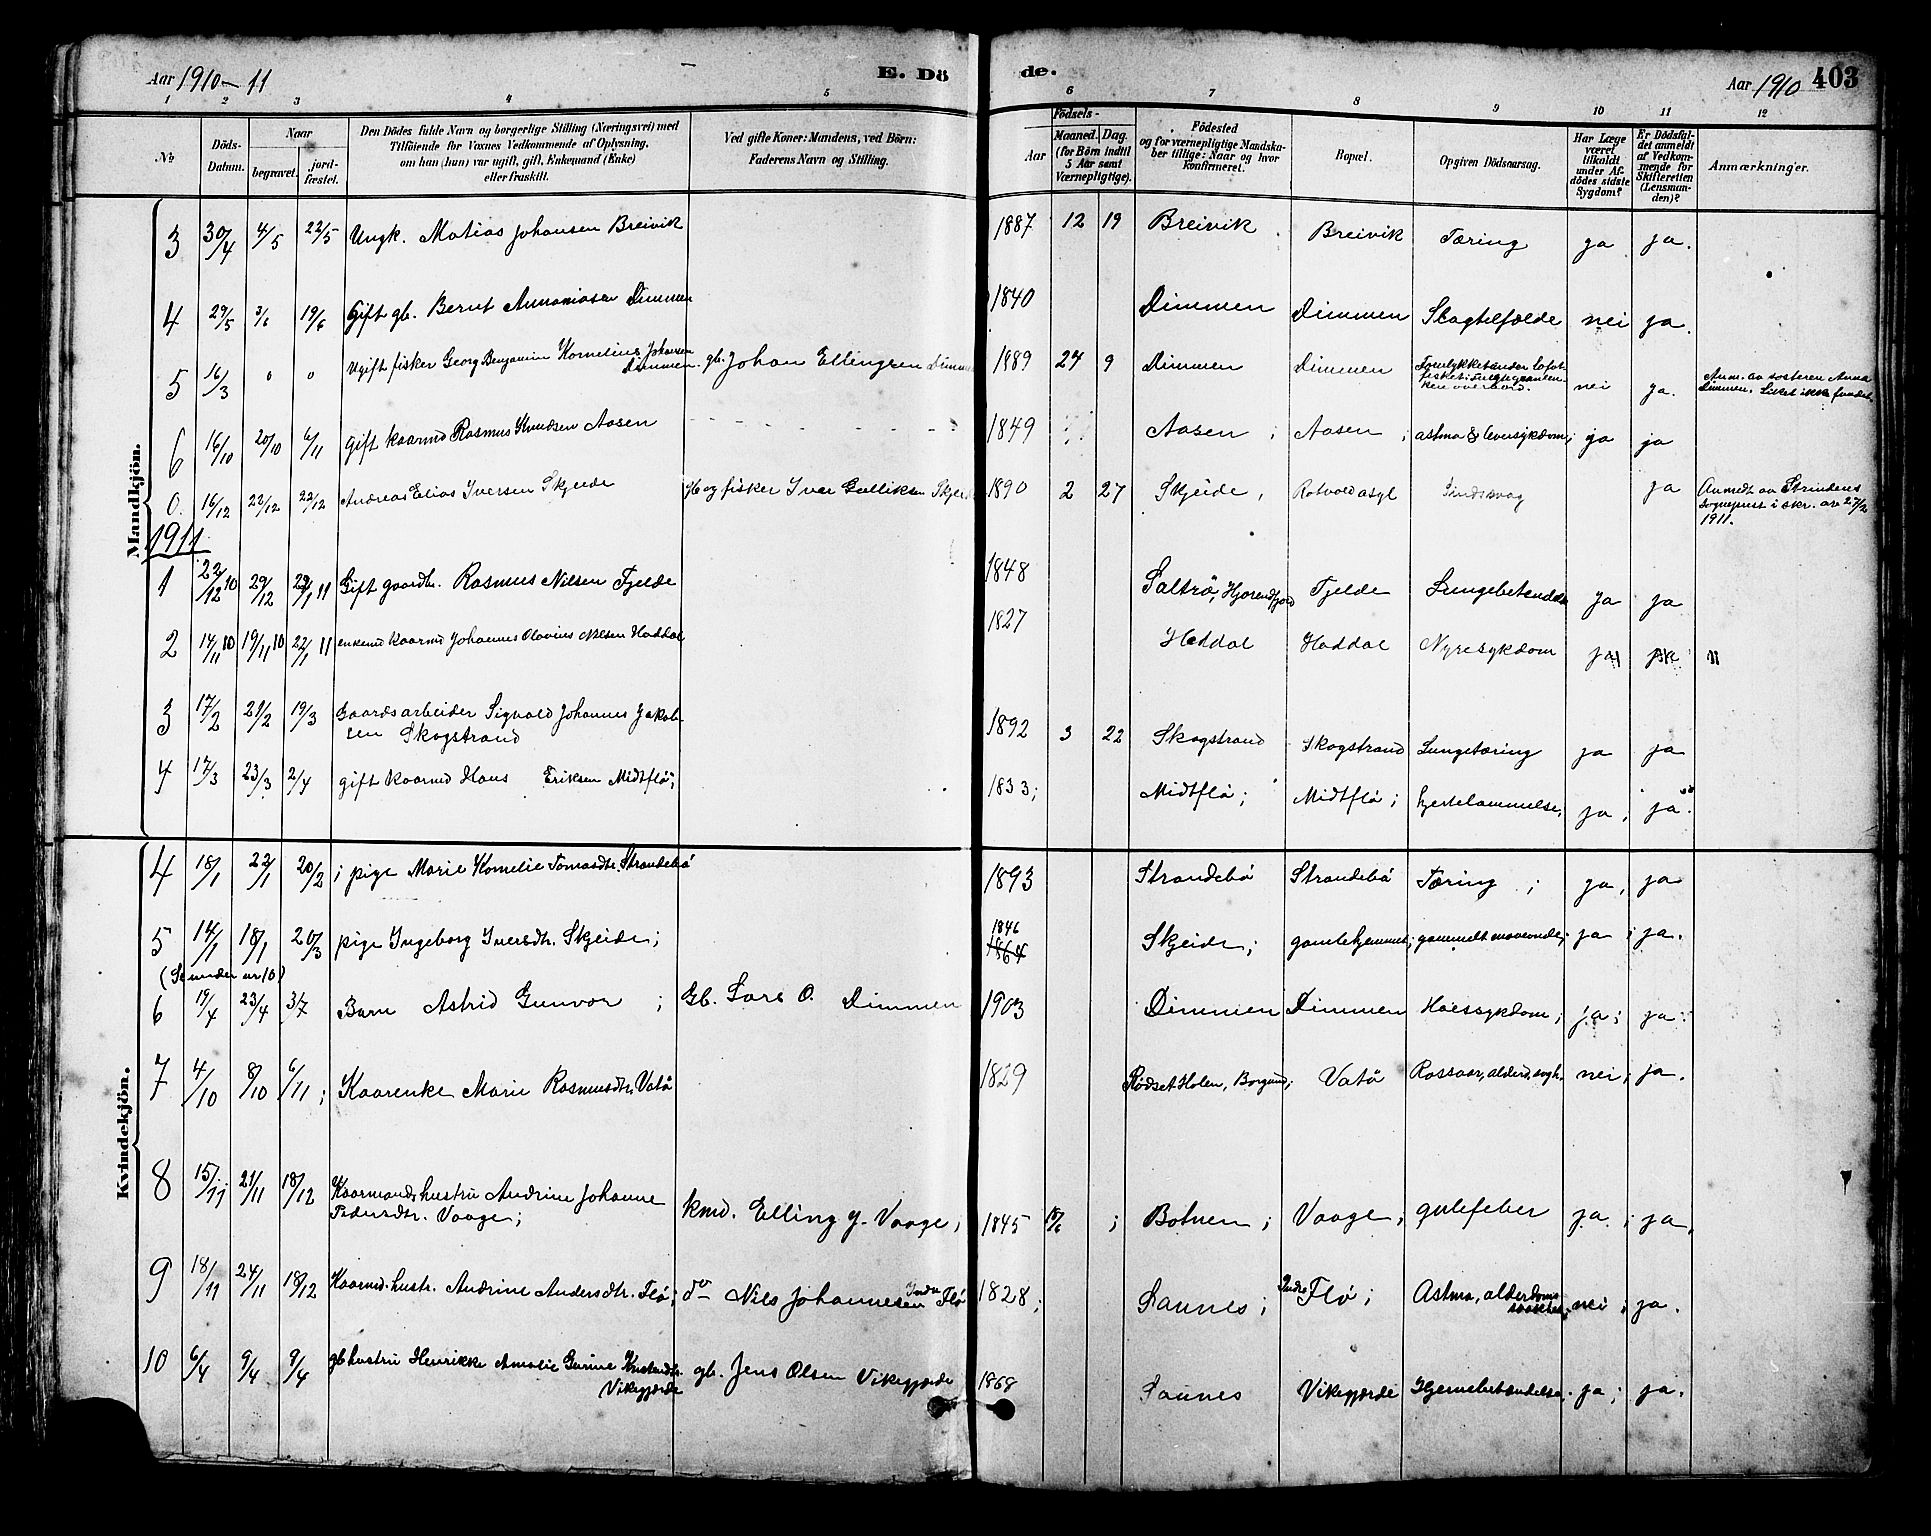 Aar 1910-11
E. Dö
de.
Aar 1910
403
1 2 3 4 5 6 7 8 9 10 11 12
No
Döds-Datum.
Naar begravet. jord-fæstet.
Den Dödes fulde Navn og borgerlige Stilling (Næringsvei) med
Tilföiende for Voxnes Vedkommende af Oplysning,
om han (hun) var ugift, gift, Enkemand (Enke)
eller fraskilt.
Ved gifte Koner: Mandens, ved Börn:
Faderens Navn og Stilling.
Födsels-
Aar Maaned. Dag.
(for Börn indtil
5 Aar samt
Værnepligtige).
Födested
og for værnepligtige Mandska-
ber tillige: Naar og hvor
konfirmeret.
Bopæl.
Opgiven Dödsaarsag.
Har Læge
været
tilkaldt
under Af-
dödes sidste
Sygdom?
Er Dödsfal-
det anmeldt
af Vedkom-
mende for
Skifteretten
(Lensman-
den)?
Anmærkninger.
Mandkjön.
3 30/4 4/5 22/5 Ungk. Matias Johansen Breivik 1887 12 19 Breivik Breivik Tæring ja ja.
4 29/5 3/6 19/6 Gift gb. Bernt Ananiasen Dimmen 1840 Dimmen Dimmen Slagtilfælde nei ja.
5 16/3 " " Ugift fisker Georg Benjamin Kornelius Johansen
Dimmen. gb. Johan Ellingsen Dimmen 1889 24 9 Dimmen Dimmen nei ja. Anm. av søsteren Anna
Dimmen. Liket ikke fundet.
6 16/10 20/10 6/11 gift kaarmd Rasmus Knudsen Aasen 1849 Aasen ; Aasen ; astma & leversykdom; ja ja
0. 16/12 22/12 22/12 Andreas Elias Iversen Skjeide fisker Iver Galliksen Skjeide 1890 2 27 Skjeide, Rotvold asyl Sindssvag ja Anmedt av Strindens
sogneprest i skr. av 27/2
1911.
1911
1 22/12 10 29/12 29/1 11 Gift gaardbr. Rasmus Nilsen Tjelde 1848 Saltrö, Hjörendfjord Tjelde Lungebetendelse ja ja
2 14/11 10 19/11 10 22/1 11 enkemd kaarmd Johannes Olavius Nilsen Haddal 1827 Haddal Haddal Nyresykdom ja ja "
3 17/2 21/2 19/3 Gaardsarbeider Sigvald Johannes Jakob-
sen Skogstrand 1892 3 22 Skogstrand Skogstrand Lungetæring ja ja
4 17/3 23/3 2/4 gift kaarmd Hans Eriksen Midtflö; 1833; Midtflö; Midtflö; hjertelammelse; ja; ja.
Kvindekjön.
4 18/1 22/1 20/2 ; pige Marie Kornelie Tomasdtr. Strandebö 1893 Strandebö Strandebö Tæring ; ja, ja
5 14/1 18/1 20/3 pige Ingeborg Iversdtr. Skjeide; 1846
1864 Skjeide; gamlehjemmet; ja ; ja.
(Se under nr. 10)
6 19/4 23/4 3/7 Barn Astrid Gunvor ; Gb. Lars O. Dimmen 1903 Dimmen Dimmen Halssykdom; ja; ja.
7 4/10 8/10 6/11; Kaarenke Marie Rasmusdtr. Vatö 1829 Rödset Holen, Borgund; Vatö nei; ja.
8 15/11 21/11 18/12 Kaarmands hustru Andrine Johanne
Pedersdtr. Vaage; kmd. Elling J. Vaage; 1845 18/6 ; Botnen; Vaage; gulefeber ja. ; ja,
9 18/11 24/11 18/12 Kaarmd. hustr. Andrine Andersdtr. Flö; do Nils Johannesen Indre Flö 1828; Sannes; Indre Flö; Astma, alderdoms
svakhet; nei ; ja.
10 6/4 9/4 9/4 gb hustru Henrikke Amalie Gurine
Vikegjærde gb. Jens Olsen Vikegjærde 1868 Sannes Vikegjærde Hjernebetændelse, ja; ja.